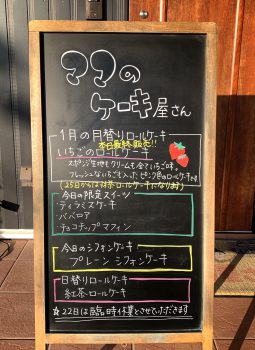 ママの
ケーキ屋さん
1月の月替りロールケーキ
本日最終販売!!
いちごのロールケーキ
スポンジ生地もクリームも全ていちご味。
フレッシュないちごも入ったピンク色のロールケーキです
(25日からは抹茶ロールケーキになります)
今日の限定スイーツ
・ティラミスケーキ
・ババロア
・チョコチップマフィン
今日のシフォンケーキ
プレーンシフォンケーキ
日替りロールケーキ
紅茶ロールケーキ
☆22日は臨時休業とさせていただきます